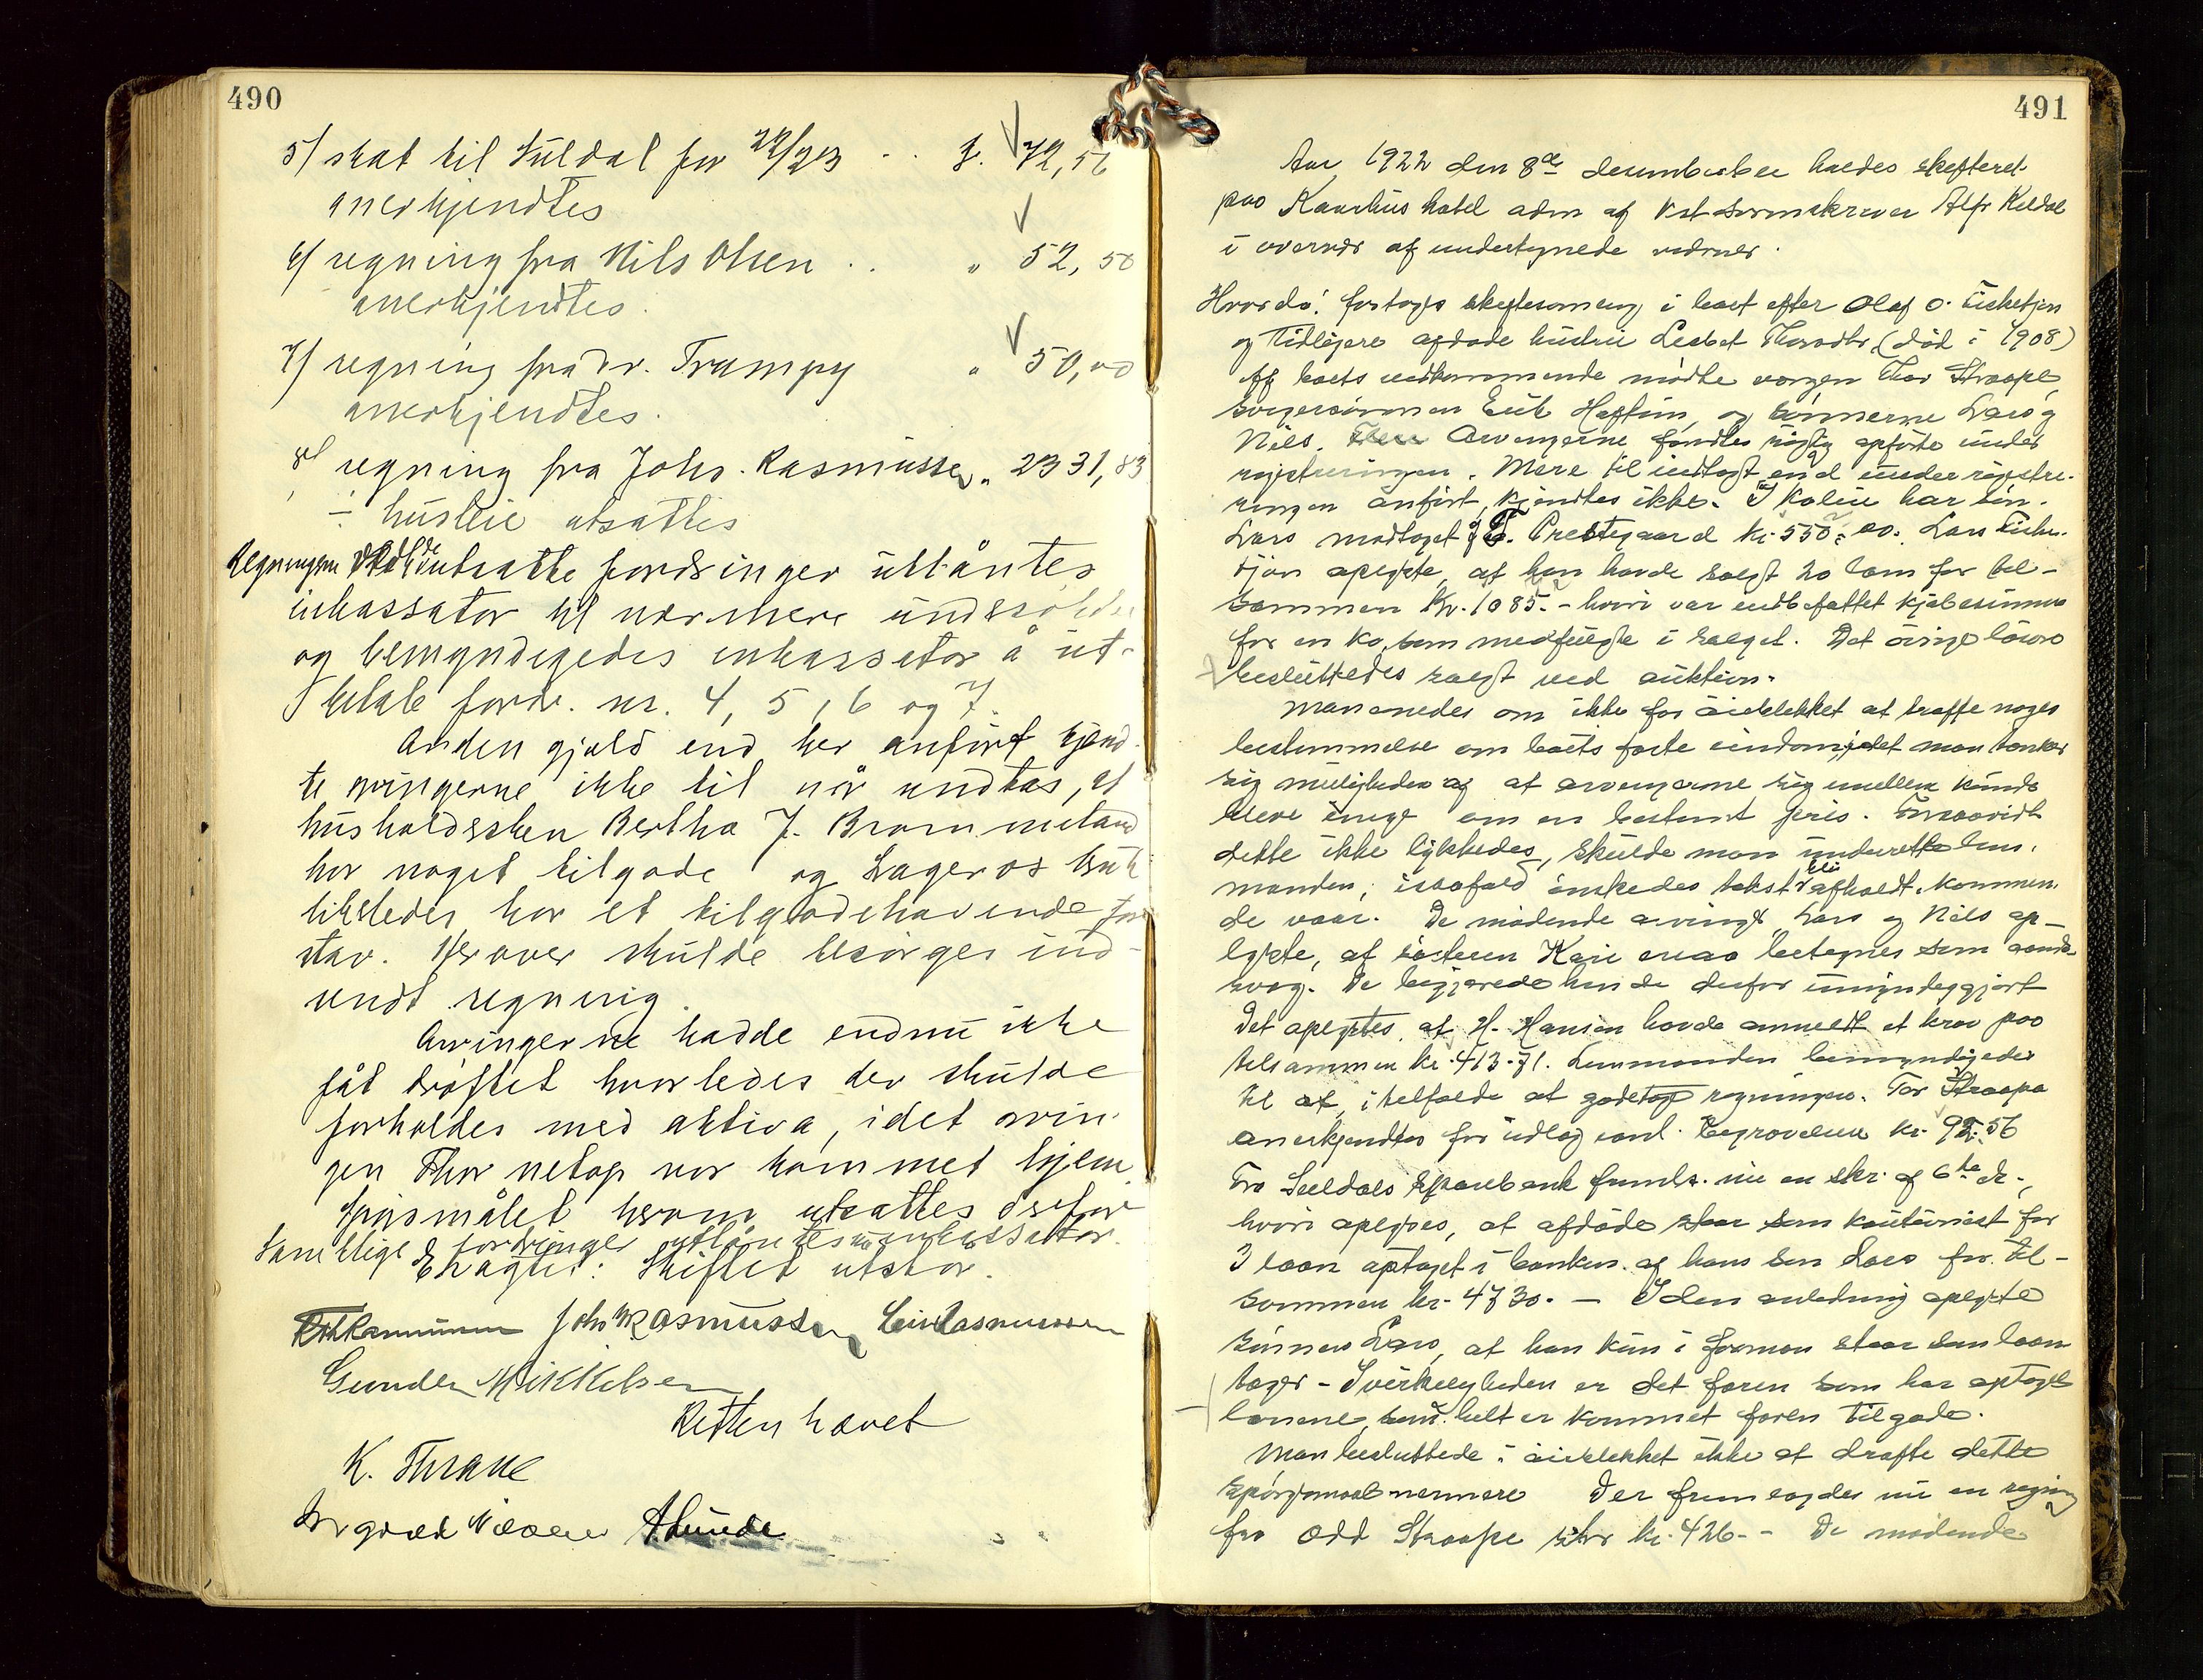 490
5/ skat til Suldal for 22/23 . . . 72,56
anerkjendtes
6/ regning fra Nils Olsen . . " 52,50
anerkjendtes.
7/ regning fra dr. Trampy " 50,00
anerkjendtes.
8/ regning fra Johs. Rasmussen " 2331,83
÷ husleie utsattes
Regningen utsatte fordringer utlåntes
inkassator til nærmere
og bemyndigedes inkassator å ut-
betale fordr. nr. 4, 5, 6 og 7.
Anden gjæld end her anført kjend-
te arvingerne ikke til når undtas, at
husholdersken Bertha J.
har noget tilgode og
likeledes har et tilgodehavende for
stav. Herover skulde besørges ind-
sendt regning.
Arvingerne hadde endnu ikke
fåt drøftet hvorledes der skulde
forholdes med aktiva, idet arvin-
gen Thor netop var kommet hjem.
Spørsmålet herom utsattes derfor
Samtlige fordringer utlåntes inkassator.
Skiftet utstår.
Johs Rasmussen
Gunder Mikkelsen
Retten hævet
K. Thrane
491
Aar 1922 den 8de december holdes skifteret
paa hotel adm af
i overvær af undertegnede vidner.
Hvorda: foretoges skiftesamling i boet efter Olaf O.
og tidligere afdøde hustru Lisbet (død i 1908)
Af boets vedkommende mødte vergen Thor Straape,
svigersønnen og sønnerne Lars og
Nils. Arvingerne fandtes rigtig opførte under
registreringen. Mere til indtægt end under registre-
ringen anført, kjendtes ikke. I har søn.
Lars modtaget af T. Prestegaard kr. 550,00. Lars
oplyste, at han havde solgt 20 lam for til-
sammen Kr. 1085.- hvori var indbefattet kjøbesummen
for en ko, som medfulgte i salget. Det øvrige løsøre
besluttedes solgt ved auktion.
Man enedes om ikke for øieblikket at træffe nogen
bestemmelse om boets faste eiendom, idet man tænker
sig muligheden af at arvingerne sig imellem kunde
bleve enige om en bestemt pris. Forsaavidt
dette ikke lykkedes, skulde man underrette lens-
manden; isaafald ønskedes takst bli afholdt kommen-
de vaar. De mødende arvinger Lars og Nils op-
lyste, at søsteren Kari maa betegnes som aands-
svag. De begjærede hende derfor umyndiggjort
Det oplystes, at H. Hansen havde anmeldt et krav paa
tilsammen kr. 413.71. Lensmanden bemyndigedes
til at, i tilfælde at godtage regningen. Tor Straapa
anerkjendtes for udlæg Begravelsen kr. 92.56
Fra Suldals Sparebank fremla. nu en skr. af 6te ds.,
hvori oplyses, at afdøde staar som kautionist for
3 laan optaget i banken af hans søn Lars for til-
sammen kr. 4730.- I den anledning oplyste
sønnen Lars, at han kun i formen staar som laan-
tager - I virkeligheden er det faren som har optaget
lånene, som helt er kommet faren tilgode.
Man besluttede i øieblikket ikke at drøfte dette
spørgsmaal nærmere Der fremlagdes nu en regning
fra Odd Straape stor kr. 426.- De mødende